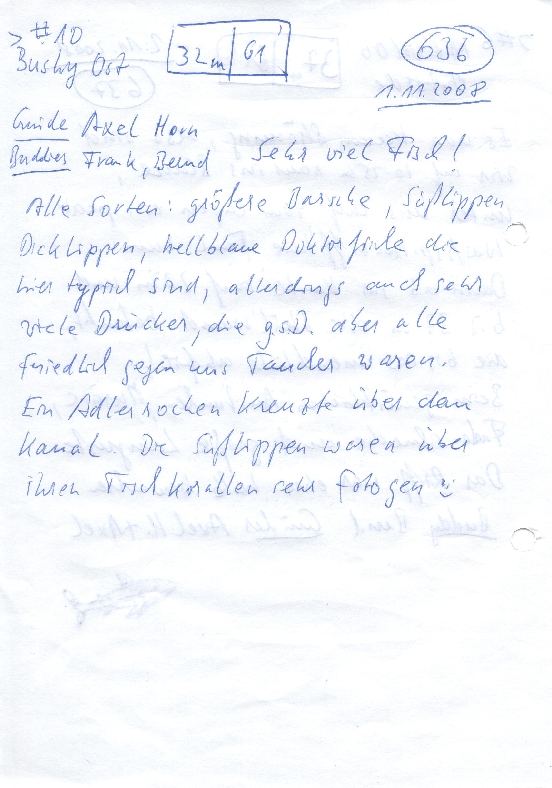 > #10
Bushy Ost
32m | 61'
636
1.11.2008
Guide Axel Horn
Buddies Frank, Bernd Sehr viel Fisch!
Alle Sorten: größere Barsche, Süßlippen
Dicklippen, hellblaue Doktorfische die
hier typisch sind, allerdings auch sehr
viele Drücker, die g.s.D. aber alle
friedlich gegen uns Taucher waren.
Ein Adlerrochen kreuzte über dem
Kanal. Die Süßlippen waren über
ihren Tischkorallen sehr fotogen